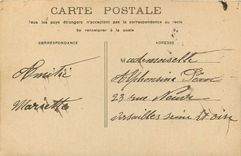 CARTE POSTALE
Tous les pays étrangers n'acceptent pas la correspondance au recto
Se renseigner à la poste
CORRESPONDANCE
ADRESSE
Amitié
Mariette
Mademoiselle
Alphonsine
23 rue Neuve
Versailles Seine et Oise